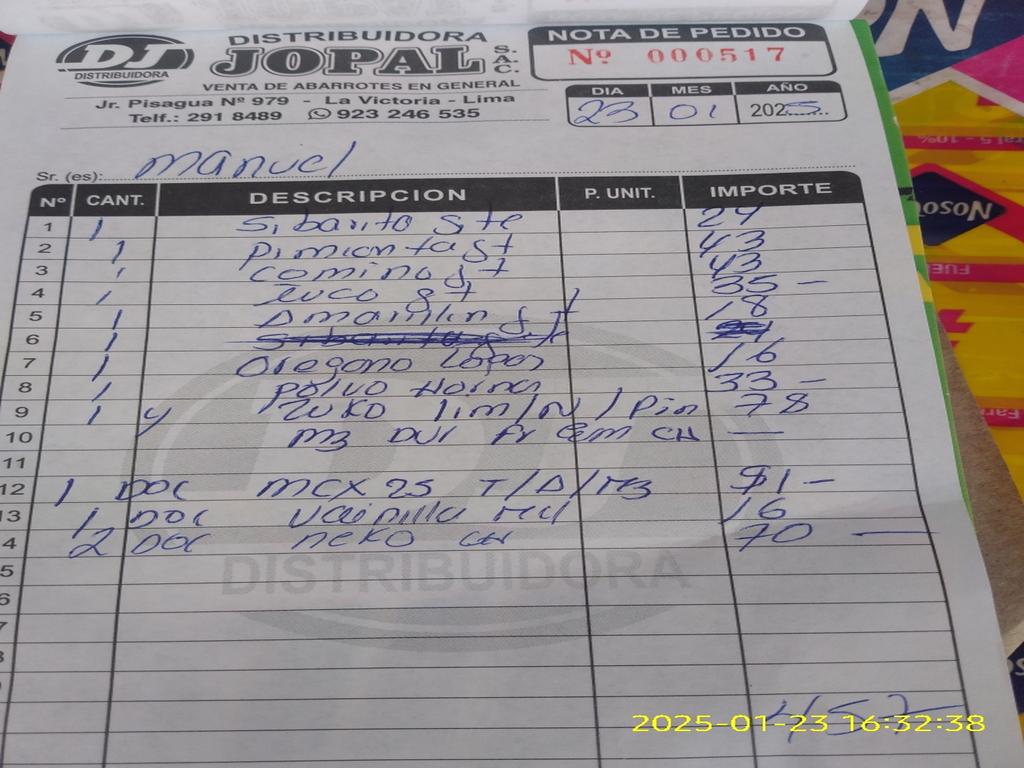 DJ DISTRIBUIDORA
DISTRIBUIDORA
JOPAL S.A.C.
VENTA DE ABARROTES EN GENERAL
Jr. Pisagua Nº 979 - La Victoria - Lima
Telf.: 291 8489 923 246 535
NOTA DE PEDIDO
Nº 000517
DIA MES AÑO
23 01 2025
Sr. (es): Manuel
Nº CANT. DESCRIPCION P. UNIT. IMPORTE
1 1 Sibarito S, te 24
2 1 Pimienta gt 43
3 1 Comino gt 43
4 1 Tuco gt 35 -
5 1 Amarillin gt 18
6 1
7 1 Oregano Lopes 16
8 1 Polvo Horna 33 -
9 1 y Zuko lim/N/Pin 78
10 m3 Dur Fr Em CH —
11
12 1 DOC MCX25 T/D/M3 $1 -
13 1 DOC Vainilla 16
4 2 DOC neko CH 70 —
5
6
7
DISTRIBUIDORA
457
2025-01-23 16:32:38